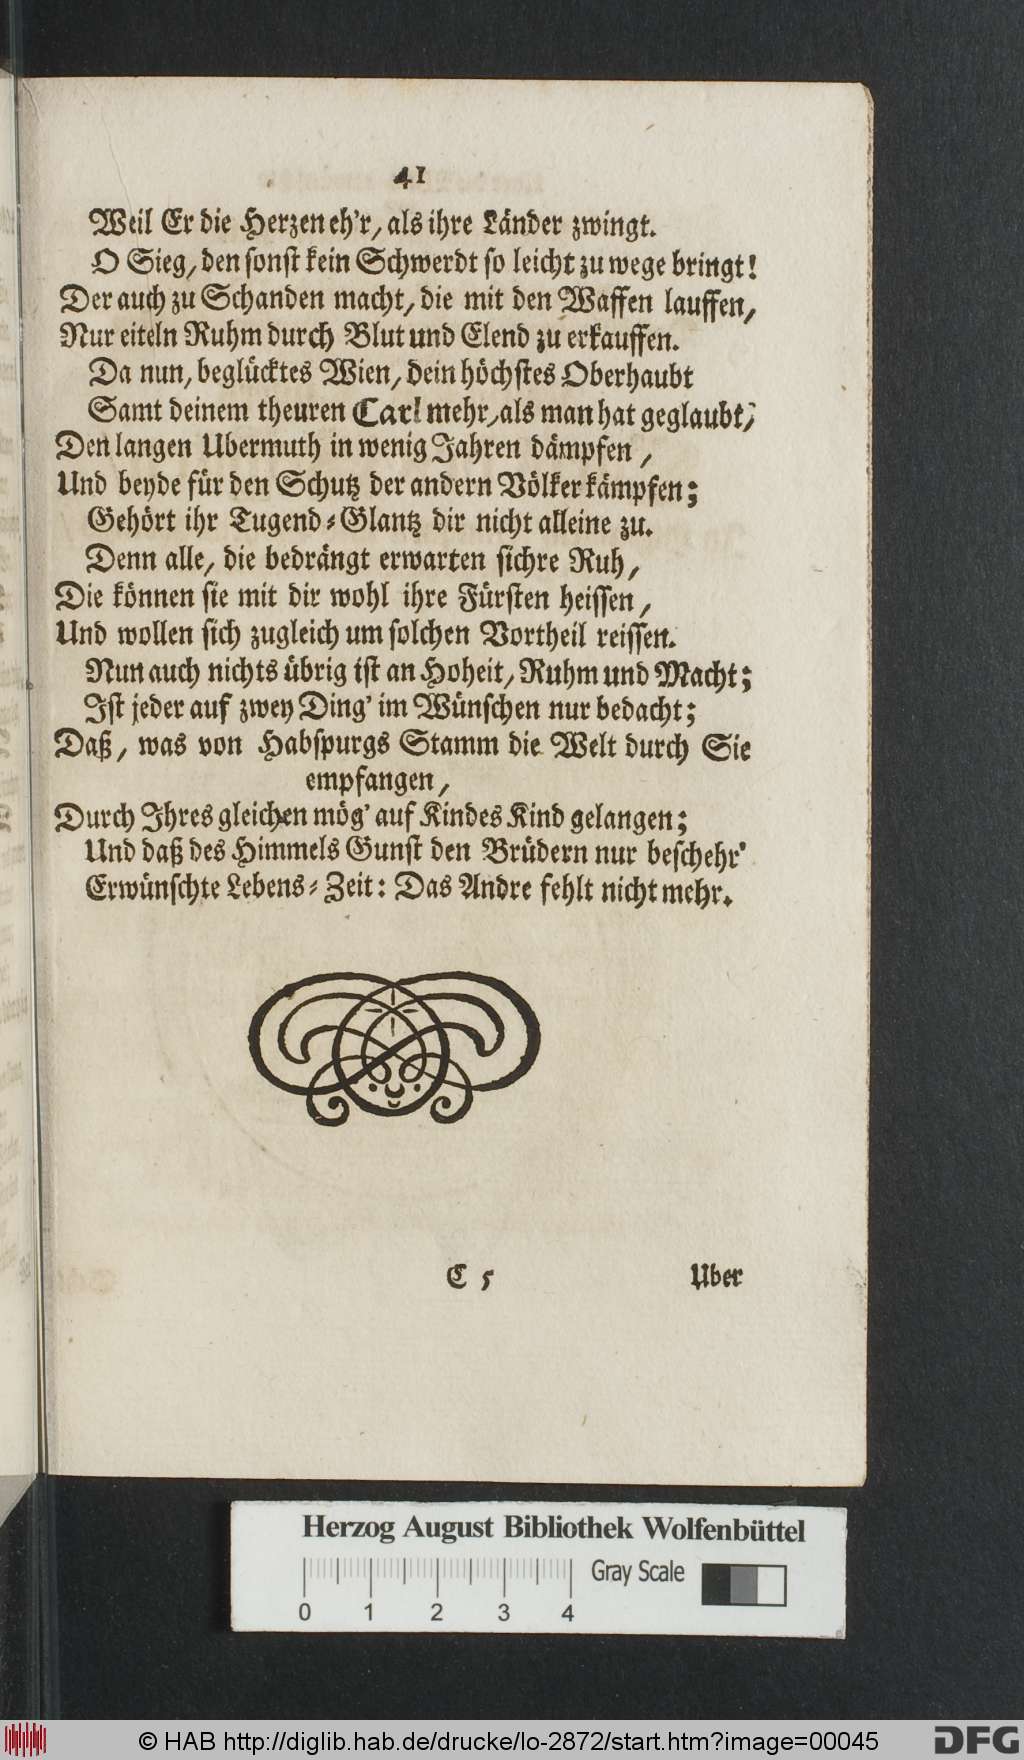 41
Weil Er die Herzen eh'r, als ihre Länder zwingt.
O Sieg, den sonst kein Schwerdt so leicht zu wege bringt!
Der auch zu Schanden macht, die mit den Waffen lauffen,
Nur eiteln Ruhm durch Blut und Elend zu erkauffen.
Da nun, beglücktes Wien, dein höchstes Oberhaubt
Samt deinem theuren Carl mehr, als man hat geglaubt,
Den langen Ubermuth in wenig Jahren dämpfen,
Und beyde für den Schutz der andern Völker kämpfen;
Gehört ihr Tugend-Glantz dir nicht alleine zu.
Denn alle, die bedrängt erwarten sichre Ruh,
Die können sie mit dir wohl ihre Fürsten heissen,
Und wollen sich zugleich um solchen Vortheil reissen.
Nun auch nichts übrig ist an Hoheit, Ruhm und Macht;
Ist jeder auf zwey Ding' im Wünschen nur bedacht;
Daß, was von Habspurgs Stamm die Welt durch Sie
empfangen,
Durch Ihres gleichen mög' auf Kindes Kind gelangen;
Und daß des Himmels Gunst den Brüdern nur beschehr'
Erwünschte Lebens-Zeit: Das Andre fehlt nicht mehr.
C 5 Uber
Herzog August Bibliothek Wolfenbüttel
Gray Scale
0 1 2 3 4
© HAB http://diglib.hab.de/drucke/lo-2872/start.htm?image=00045
DFG